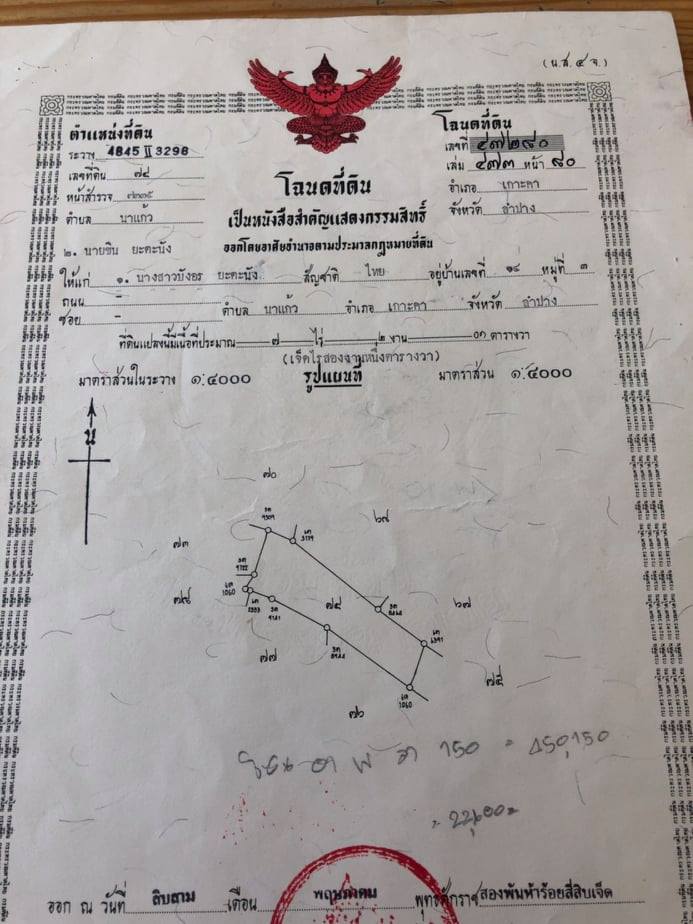 (น.ส.๔ จ.)
ตำแหน่งที่ดิน
ระวาง 4845 II 3298
เลขที่ดิน ๗๔
หน้าสำรวจ ๗๓๕
ตำบล นาแก้ว
โฉนดที่ดิน
เลขที่ ๔๗๒๙๐
เล่ม ๔๗๓ หน้า ๙๐
อำเภอ เกาะคา
จังหวัด ลำปาง
โฉนดที่ดิน
เป็นหนังสือสำคัญแสดงกรรมสิทธิ์
ออกโดยอาศัยอำนาจตามประมวลกฎหมายที่ดิน
๒. นายชิน ยะตะนัง
ให้แก่ ๑. นางสาวบังอร ยะตะนัง สัญชาติ ไทย อยู่บ้านเลขที่ ๑๔ หมู่ที่ ๓
ถนน - ตำบล นาแก้ว อำเภอ เกาะคา จังหวัด ลำปาง
ซอย -
ที่ดินแปลงนี้มีเนื้อที่ประมาณ ๗ ไร่ ๒ งาน ๐๑ ตารางวา
(เจ็ดไร่สองงานหนึ่งตารางวา)
มาตราส่วนในระวาง ๑:๔๐๐๐ รูปแผนที่ มาตราส่วน ๑:๔๐๐๐
น
๗๐
๖๗
๗๓
๗๔
๖๗
๗๗
๗๕
๗๖
1060
1060
150 = 450,150
ออก ณ วันที่ สิบสาม เดือน พฤษภาคม พุทธศักราช สองพันห้าร้อยสี่สิบเจ็ด